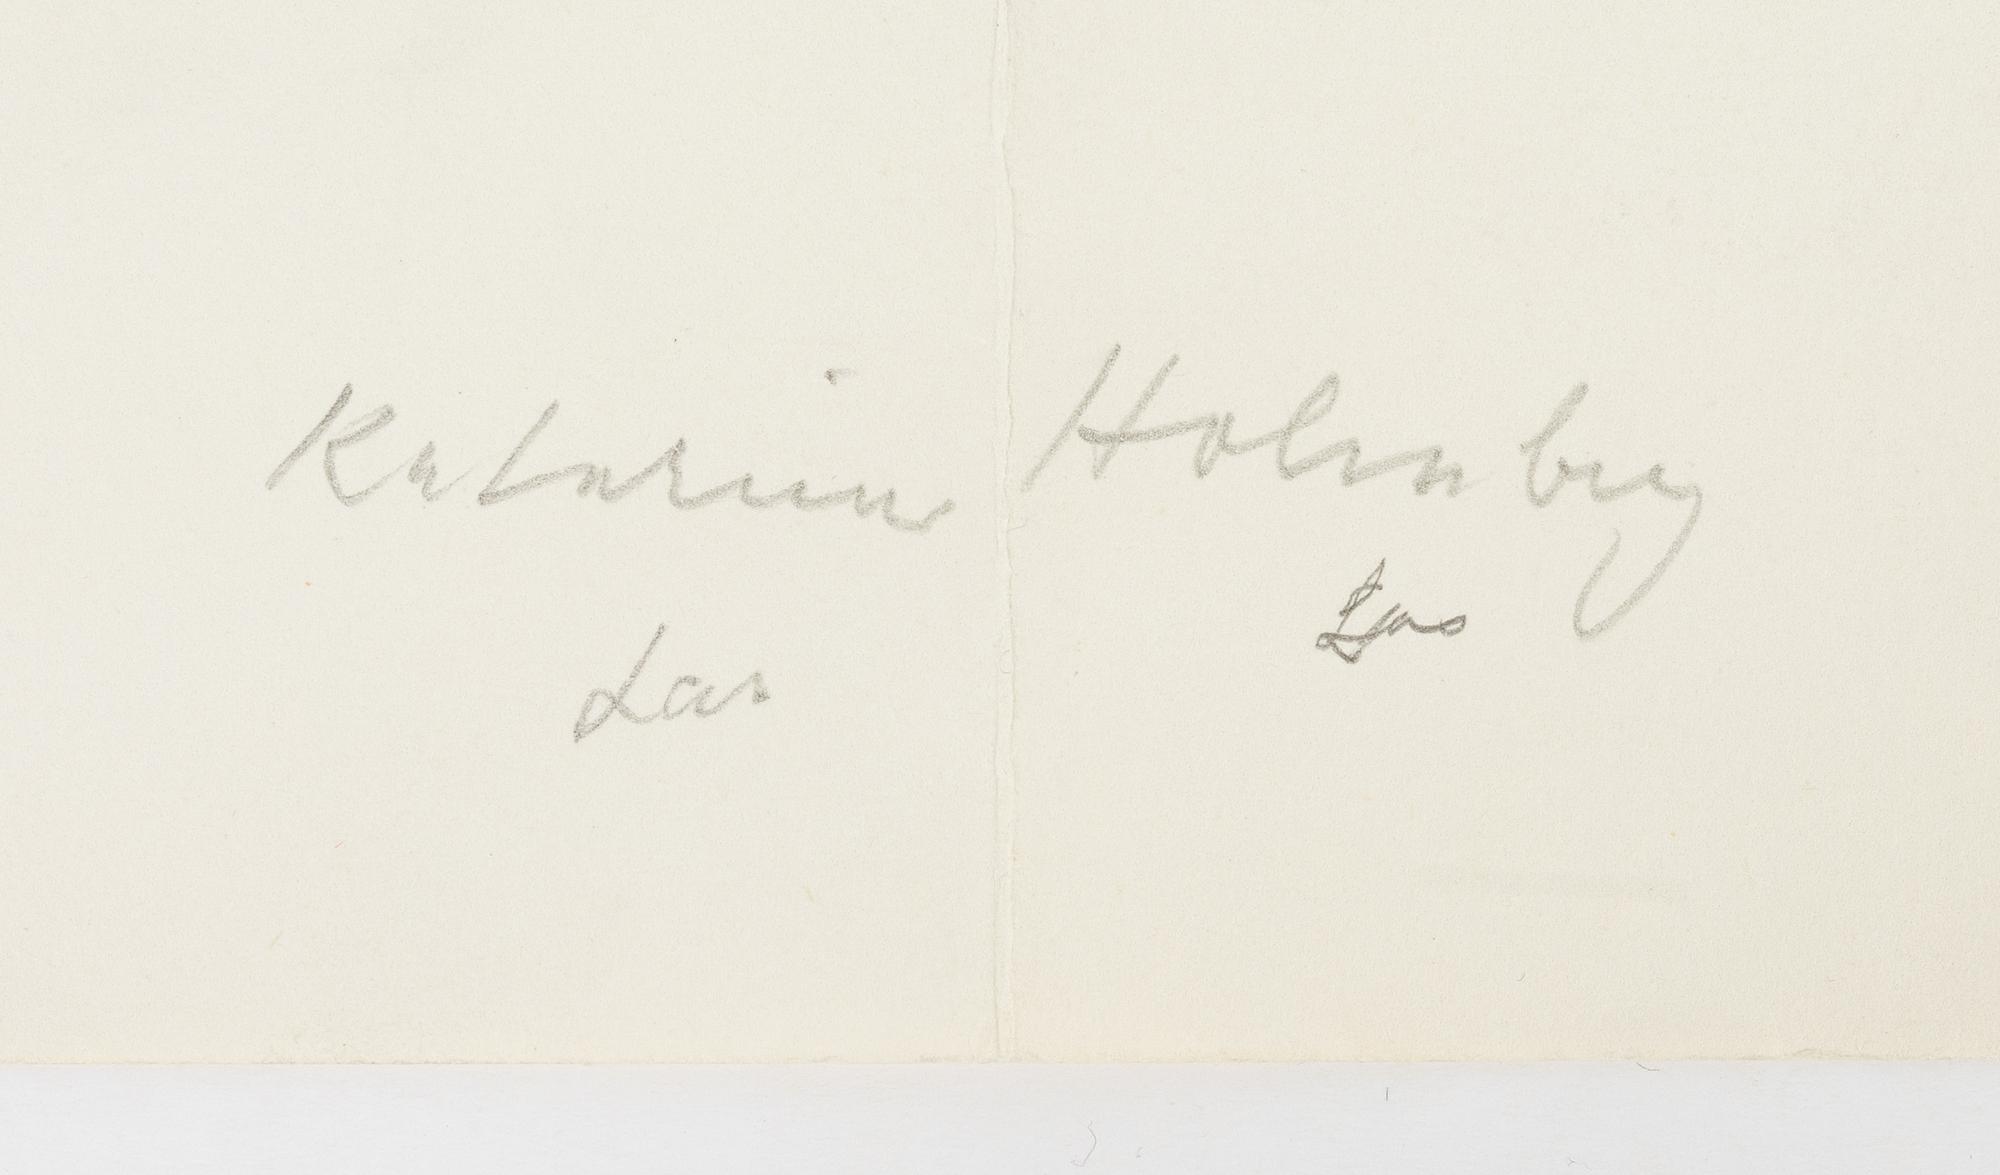 Katarina Holmberg
Las
Las